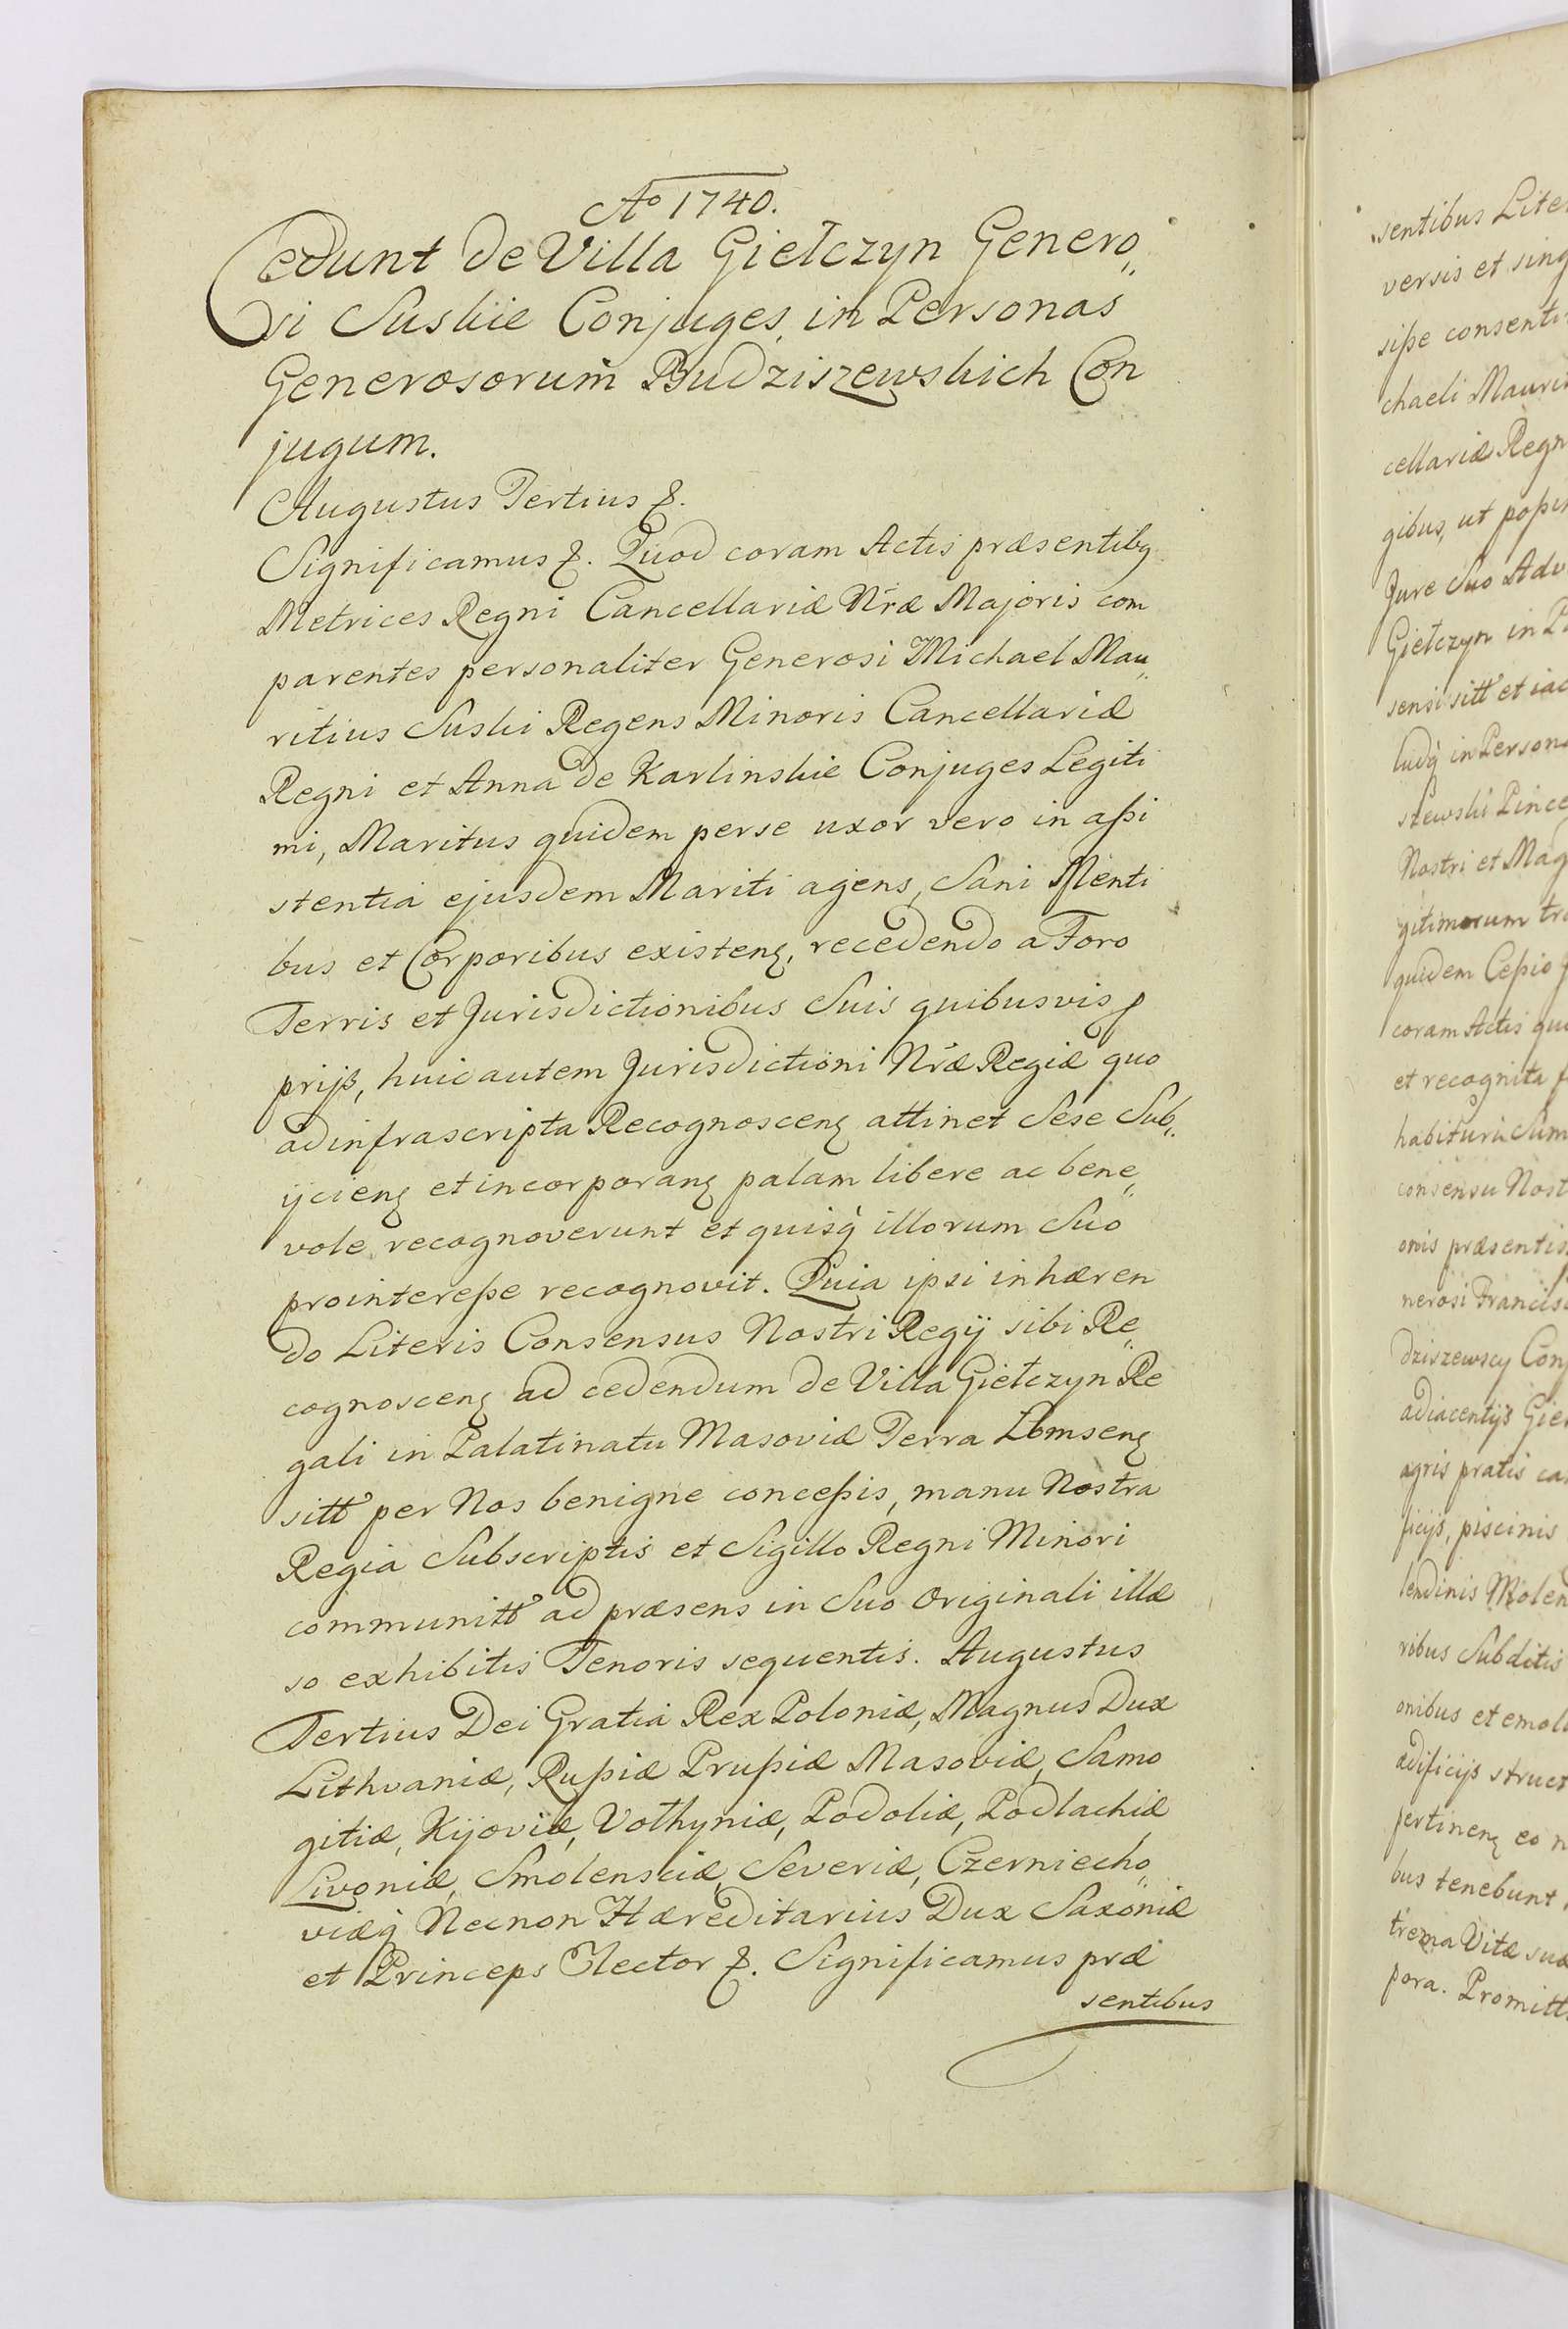 Ao 1740.
Cedunt de Villa Giełczyn Genero„
si Suskie Conjuges in Personas
Generosorum Budziszewskich Con
jugum.
Augustus Tertius &.
Significamus &. Quod coram Actis præsentibq
Metrices Regni Cancellariæ Nræ Majoris com
parentes personaliter Generosi Michael Mau„
ritius Suski Regens Minoris Cancellariæ
Regni et Anna de Karlinskie Conjuges Legiti
mi, Maritus quidem perse uxor vero in aßi
stentia ejusdem Mariti agens, Sani Menti
bus et Corporibus existenꝫ, recedendo a Foro
Terris et Jurisdictionibus Suis quibusvis ꝓ
prijß, huic autem Jurisdictioni Nræ Regiæ quo
ad infrascripta Recognoscenꝫ attinet Sese Sub„
ijcienꝫ et incorporanꝫ palam libere ac bene„
vole recognoverunt et quisq̀ illorum Suo
prointereße recognovit. Quia ipsi inhæren
do Literis Consensus Nostri Regij sibi Re„
cognoscenꝫ ad cedendum de Villa Giełczyn Re
gali in Palatinatu Masoviæ Terra Łomsenꝫ
sitt per Nos benigne conceßis, manu Nostra
Regia Subscriptis et Sigillo Regni Minori
communitt ad præsens in Suo Originali illæ
so exhibitis Tenoris sequentis. Augustus
Tertius Dei Gratia Rex Poloniæ, Magnus Dux
Lithvaniæ, Rußiæ Prußiæ Masoviæ, Samo
gitiæ, Kijoviæ, Vołhyniæ, Podoliæ, Podlachiæ
Livoniæ, Smolensciæ, Severiæ, Czerniecho„
viæq̀ Necnon Hæreditarius Dux Saxoniæ
et Princeps Elector &. Significamus præ
sentibus
sentibus Lite
versis et sing
siße consenti
chaeli Mauri
cellariæ Regn
gibus, ut poßin
Jure Suo Adv
Giełczyn in P
sensi sitt et iac
ludq̀ in Person
szewski Pince
Nostri et Mag
gitimorum tra
quidem Ceßio
coram Actis qu
et recognita
habituru Sum
consensu Nost
onis præsentis
nerosi Francis
dziszewscy Conj
adiacentijs Gie
agris pratis ca
ficijs, piscinis
lendinis Molen
ribus Subditis
onibus et emol
ædificijs struct
pertinenꝫ eo
bus tenebunt,
trema Vitæ suæ
pora. Promitt